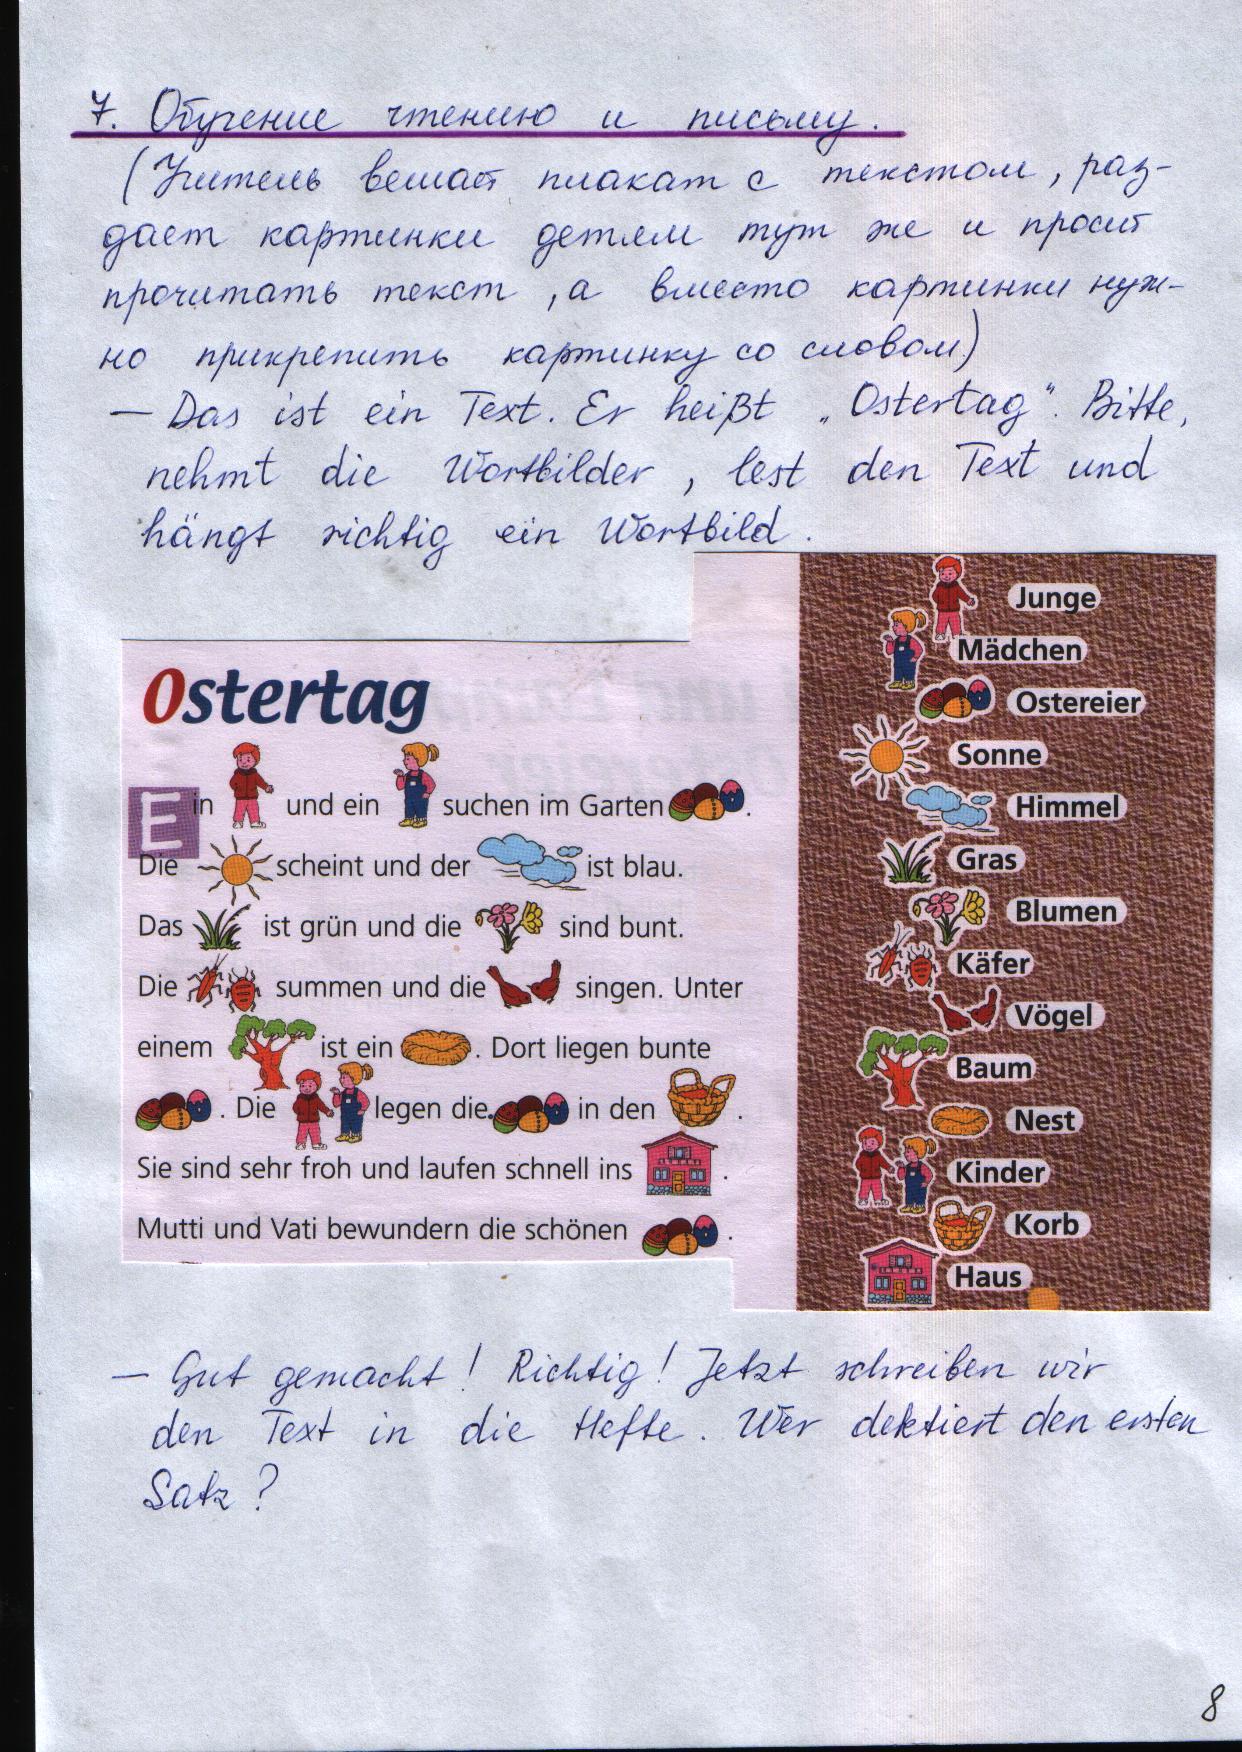 7. Обучение чтению и письму.
(Учитель вешает плакат с текстом, раз-
дает картинки детям тут же и просит
прочитать текст, а вместо картинки нуж-
но прикрепить картинку со словом)
— Das ist ein Text. Er heißt „Ostertag“. Bitte,
nehmt die Wortbilder, lest den Text und
hängt richtig ein Wortbild.
Ostertag
Ein und ein suchen im Garten .
Die scheint und der ist blau.
Das ist grün und die sind bunt.
Die summen und die singen. Unter
einem ist ein . Dort liegen bunte
. Die legen die in den .
Sie sind sehr froh und laufen schnell ins .
Mutti und Vati bewundern die schönen .
Junge
Mädchen
Ostereier
Sonne
Himmel
Gras
Blumen
Käfer
Vögel
Baum
Nest
Kinder
Korb
Haus
— Gut gemacht! Richtig! Jetzt schreiben wir
den Text in die Hefte. Wer dektiert den ersten
Satz?
8